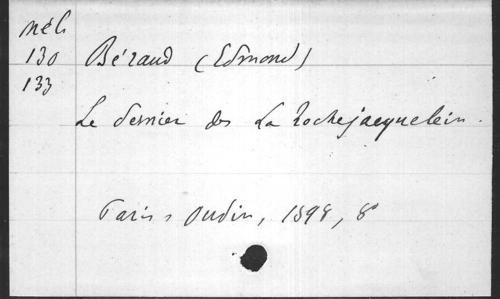 Mél.
130 Béraud (Edmond)
133
Le dernier des La Rochejacquelein.
Paris, Oudin, 1898, 8°